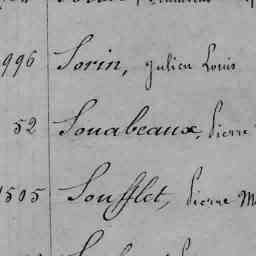 996 Sorin, Julien Louis
52 Souabeaux, Pierre
1505 Soufflet, Pierre M